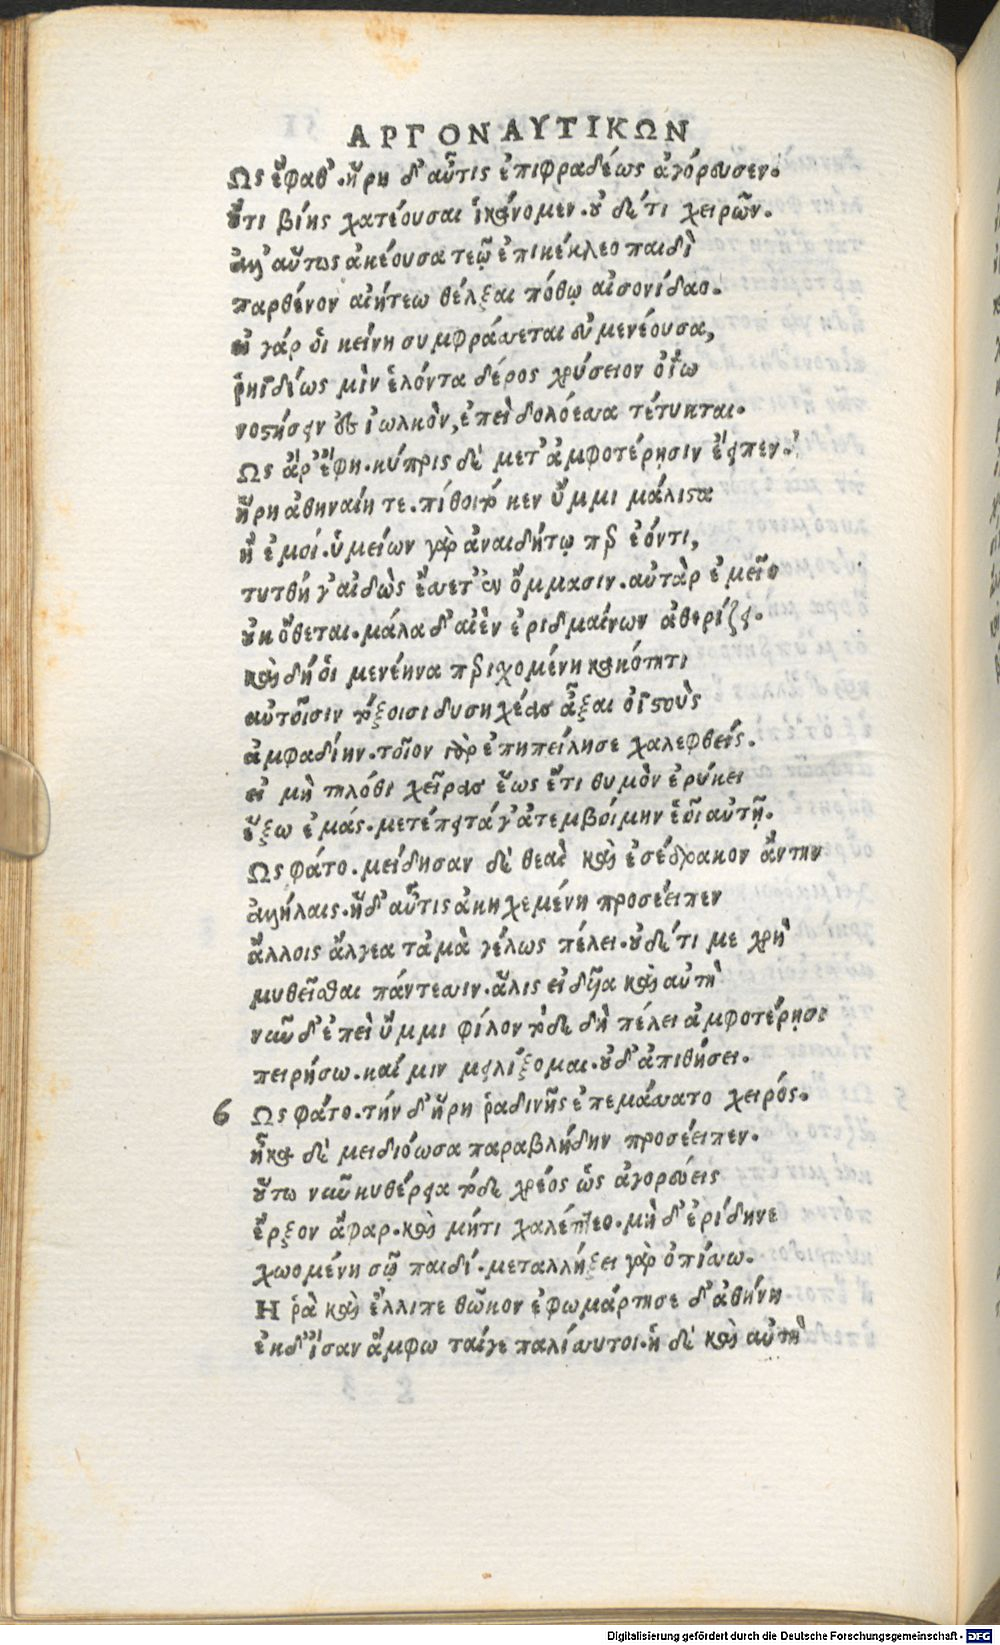 ΑΡΓΟΝΑΥΤΙΚΩΝ
Ως ἔφαθ'. ἥρη δ' αὖτις ἐπιφραδέως ἀγόρευσεν.
οὔτι βίης χατέουσαι ἱκάνομεν. οὐδέ τι χειρῶν.
ἀλλ' αὔτως ἀκέουσα τεῷ ἐπικέκλεο παιδὶ
παρθένον αἰήτεω θέλξαι πόθῳ αἰσονίδαο.
εἰ γάρ οἱ κείνη συμφράσσεται εὐμενέουσα,
ῥηϊδίως μὶν ἑλόντα δέρος χρύσειον ὀΐω
νοστήσειν ἐς ἰωλκὸν, ἐπεὶ δολόεσσα τέτυκται.
Ως ἄρ' ἔφη. κύπρις δὲ μετ' ἀμφοτέρῃσιν ἔειπεν.
ἥρη ἀθηναίη τε. πίθοιτό κεν ὔμμι μάλιστα
ἢ ἐμοί. ὑμείων γὰρ ἀναιδήτῳ περ ἐόντι,
τυτθή γ' αἰδὼς ἔσσετ' ἐν ὄμμασιν. αὐτὰρ ἐμεῖο
οὐκ ὄθεται. μάλα δ' αἰὲν ἐριδμαίνων ἀθερίζει.
καὶ δή οἱ μενέηνα περισχομένη κακότητι
αὐτοῖσιν τόξοισι δυσηχέας ἆξαι ὀϊστοὺς
ἀμφαδίην. τοῖον γὰρ ἐπηπείλησε χαλεφθείς.
εἰ μὴ τηλόθι χεῖρας ἕως ἔτι θυμὸν ἐρύκει
ἕξω ἐμάς. μετέπειτά γ' ἀτεμβοίμην ἑοῖ αὐτῇ.
Ως φάτο. μείδησαν δὲ θεαὶ καὶ ἐσέδρακον ἄντην
ἀλλήλαις. ἡ δ' αὖτις ἀκηχεμένη προσέειπεν
ἄλλοις ἄλγεα τἀμὰ γέλως πέλει. οὐδέ τι με χρὴ
μυθεῖσθαι πάντεσσιν. ἅλις εἰδῦια καὶ αὐτὴ
νῦν δ' ἐπεὶ ὔμμι φίλον τόδε δὴ πέλει ἀμφοτέρῃσι
πειρήσω. καί μιν μειλίξομαι. οὐδ' ἀπιθήσει.
6 Ως φάτο. τήν δ' ἥρη ῥαδινῆς ἐπεμάσσατο χειρός.
ἦκα δὲ μειδιόωσα παραβλήδην προσέειπεν.
οὕτω νῦν κυθέρεια τόδε χρέος ὡς ἀγορεύεις
ἔρξον ἄφαρ. καὶ μήτι χαλέπτεο. μὴ δ' ἐρίδηνε
χωομένη σῷ παιδί. μεταλλήξει γὰρ ὀπίσσω.
Η ῥα καὶ ἔλλιπε θῶκον ἐφωμάρτησε δ' ἀθήνη
ἐκ δ' ἴσαν ἄμφω ταίγε παλίσσυτοι. ἡ δὲ καὶ αὐτὴ
Digitalisierung gefördert durch die Deutsche Forschungsgemeinschaft - DFG